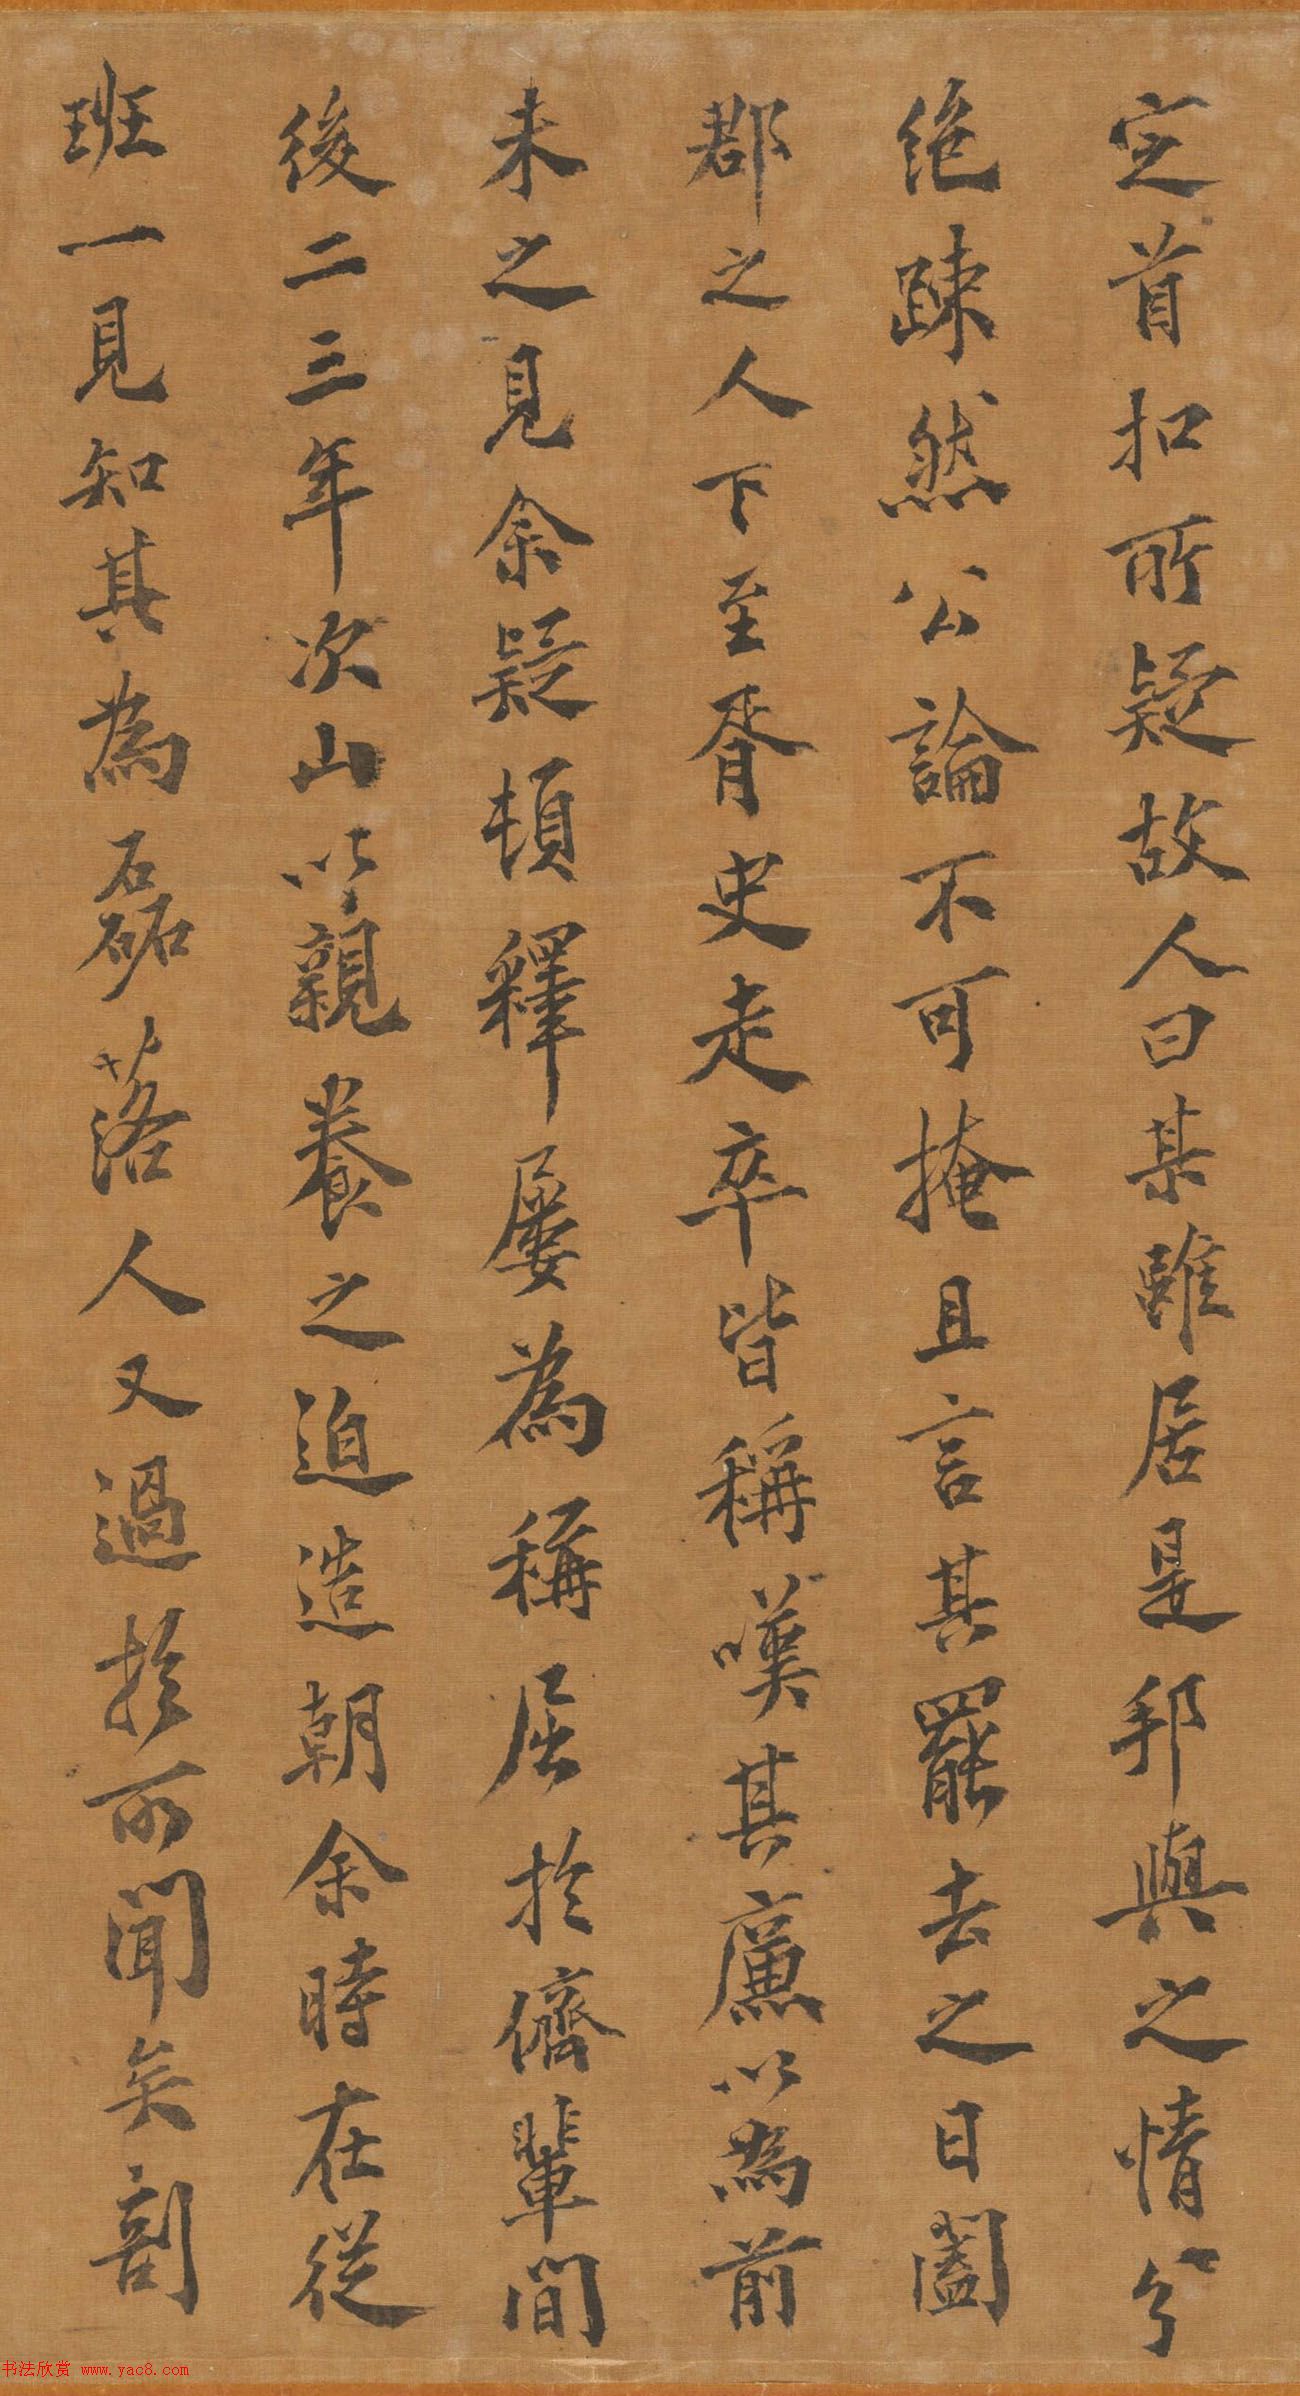 定首扣所疑故人曰某雖居是邦與之情分
絶踈然公論不可掩且言其罷去之日闔
郡之人下至胥史走卒皆稱嘆其廉以為前
未之見余疑頓釋屢為稱屈於儕輩間
後二三年次山以親養之迫造朝余時在從
班一見知其為磊落人又過於所聞矣剖
书法欣赏 www.yac8.com